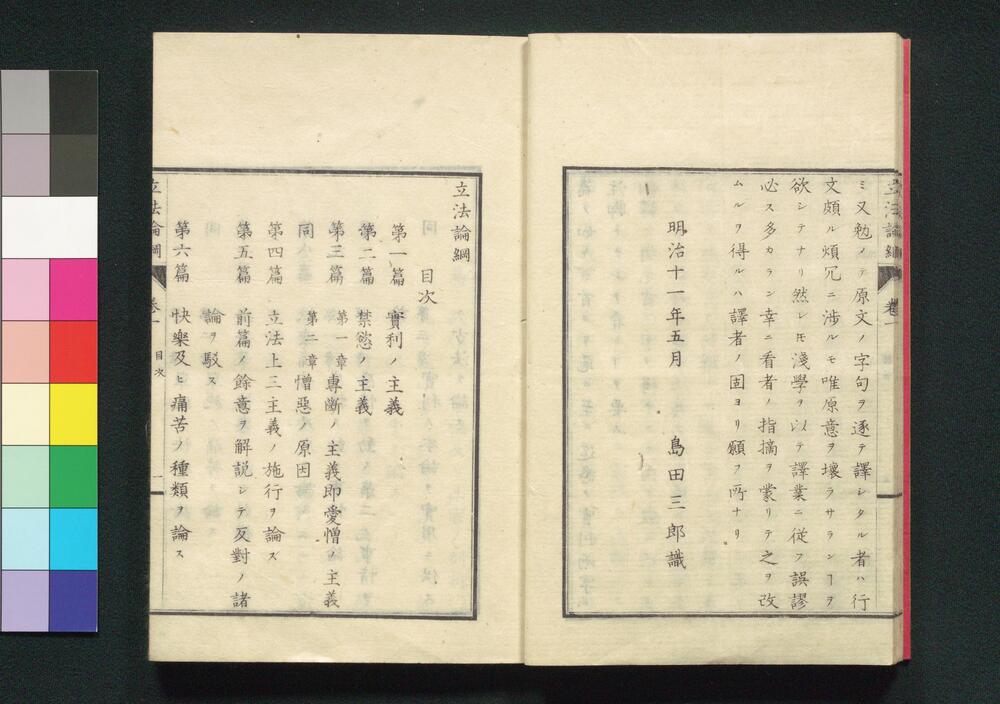 立法論綱 卷一
ミ又勉メテ原文ノ字句ヲ逐テ譯シタル者ハ行
文頗ル煩冗ニ渉ルモ唯原意ヲ壞ラサランヿヲ
欲シテナリ然レ𪜈淺學ヲ以テ譯業ニ從フ誤謬
必ス多カラン幸ニ看者ノ指摘ヲ蒙リテ之ヲ改
ムルヲ得ルハ譯者ノ固ヨリ願フ所ナリ
明治十一年五月 島田三郎識
立法論綱
目次
第一篇 實利ノ主義
第二篇 禁慾ノ主義
第三篇 第一章 專斷ノ主義即愛憎ノ主義
同 第二章 憎惡ノ原因
第四篇 立法上三主義ノ施行ヲ論ズ
第五篇 前篇ノ餘意ヲ解説シテ反對ノ諸
論ヲ駁ス
第六篇 快樂及ヒ痛苦ノ種類ヲ論ス
立法論綱 卷一 目次 一